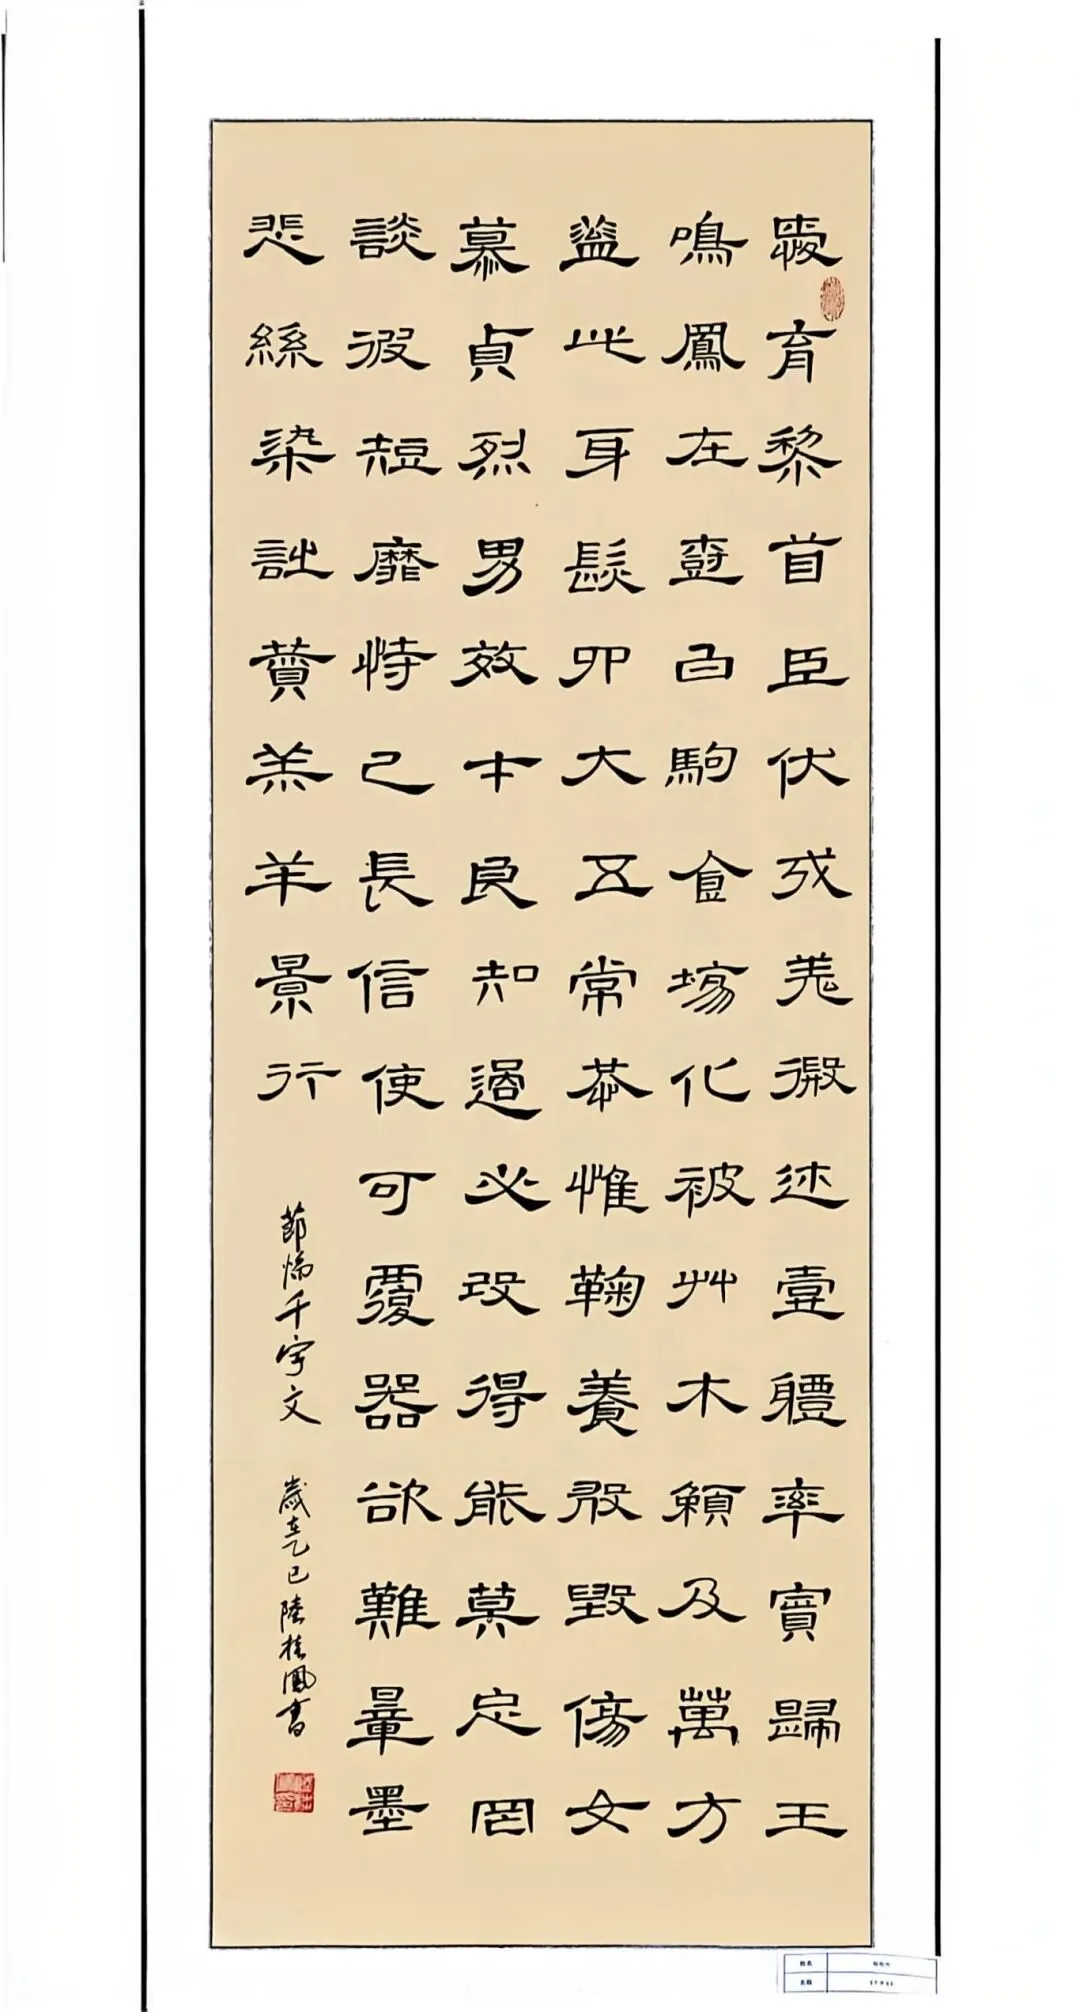 愛育黎首臣伏戎羌遐邇壹體率賓歸王
鳴鳳在尌白駒食場化被艸木賴及萬方
蓋此身髮四大五常恭惟鞠養敢毀傷女
慕貞烈男效才良知過必改得能莫忘罔
談彼短靡恃己長信使可覆器欲難量墨
悲絲染詩讚羔羊景行
節臨千字文
歲在乙巳陸桂鳳書
姓名
名称